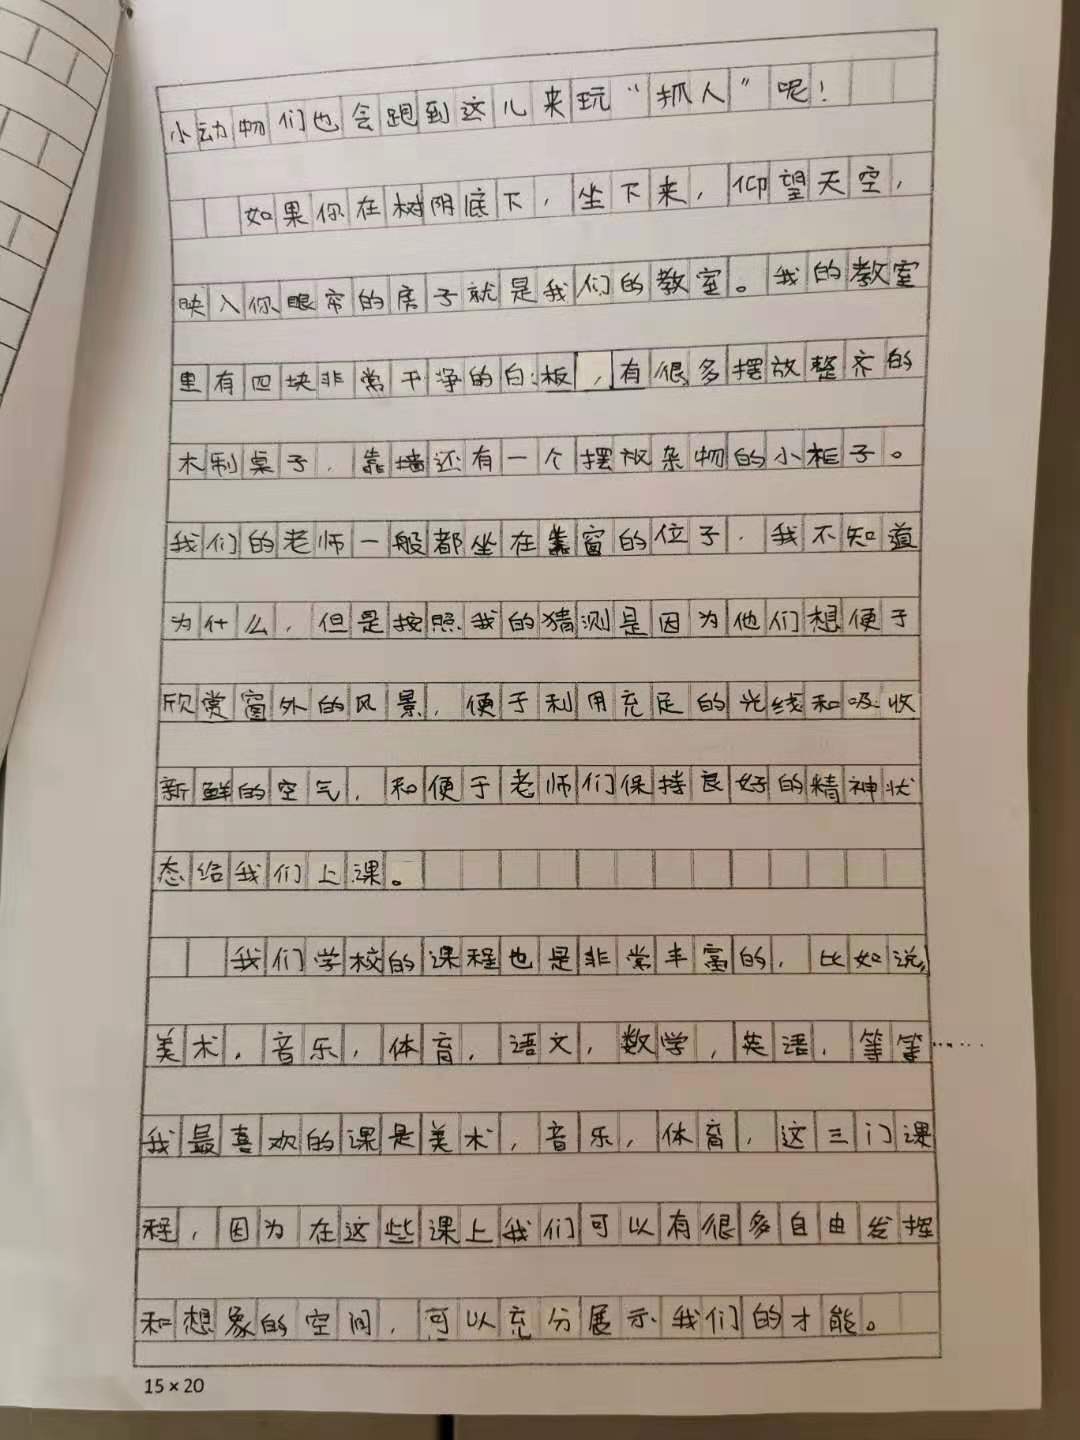 小动物们也会跑到这儿来玩“抓人”呢！
如果你在树阴底下，坐下来，仰望天空，
映入你眼帘的房子就是我们的教室。我的教室
里有四块非常干净的白板，有很多摆放整齐的
木制桌子，靠墙还有一个摆放杂物的小柜子。
我们的老师一般都坐在靠窗的位子，我不知道
为什么，但是按照我的猜测是因为他们想便于
欣赏窗外的风景，便于利用充足的光线和吸收
新鲜的空气，和便于老师们保持良好的精神状
态给我们上课。
我们学校的课程也是非常丰富的，比如说，
美术，音乐，体育，语文，数学，英语，等等……
我最喜欢的课是美术，音乐，体育，这三门课
程，因为在这些课上我们可以有很多自由发挥
和想象的空间，可以充分展示我们的才能。
15×20